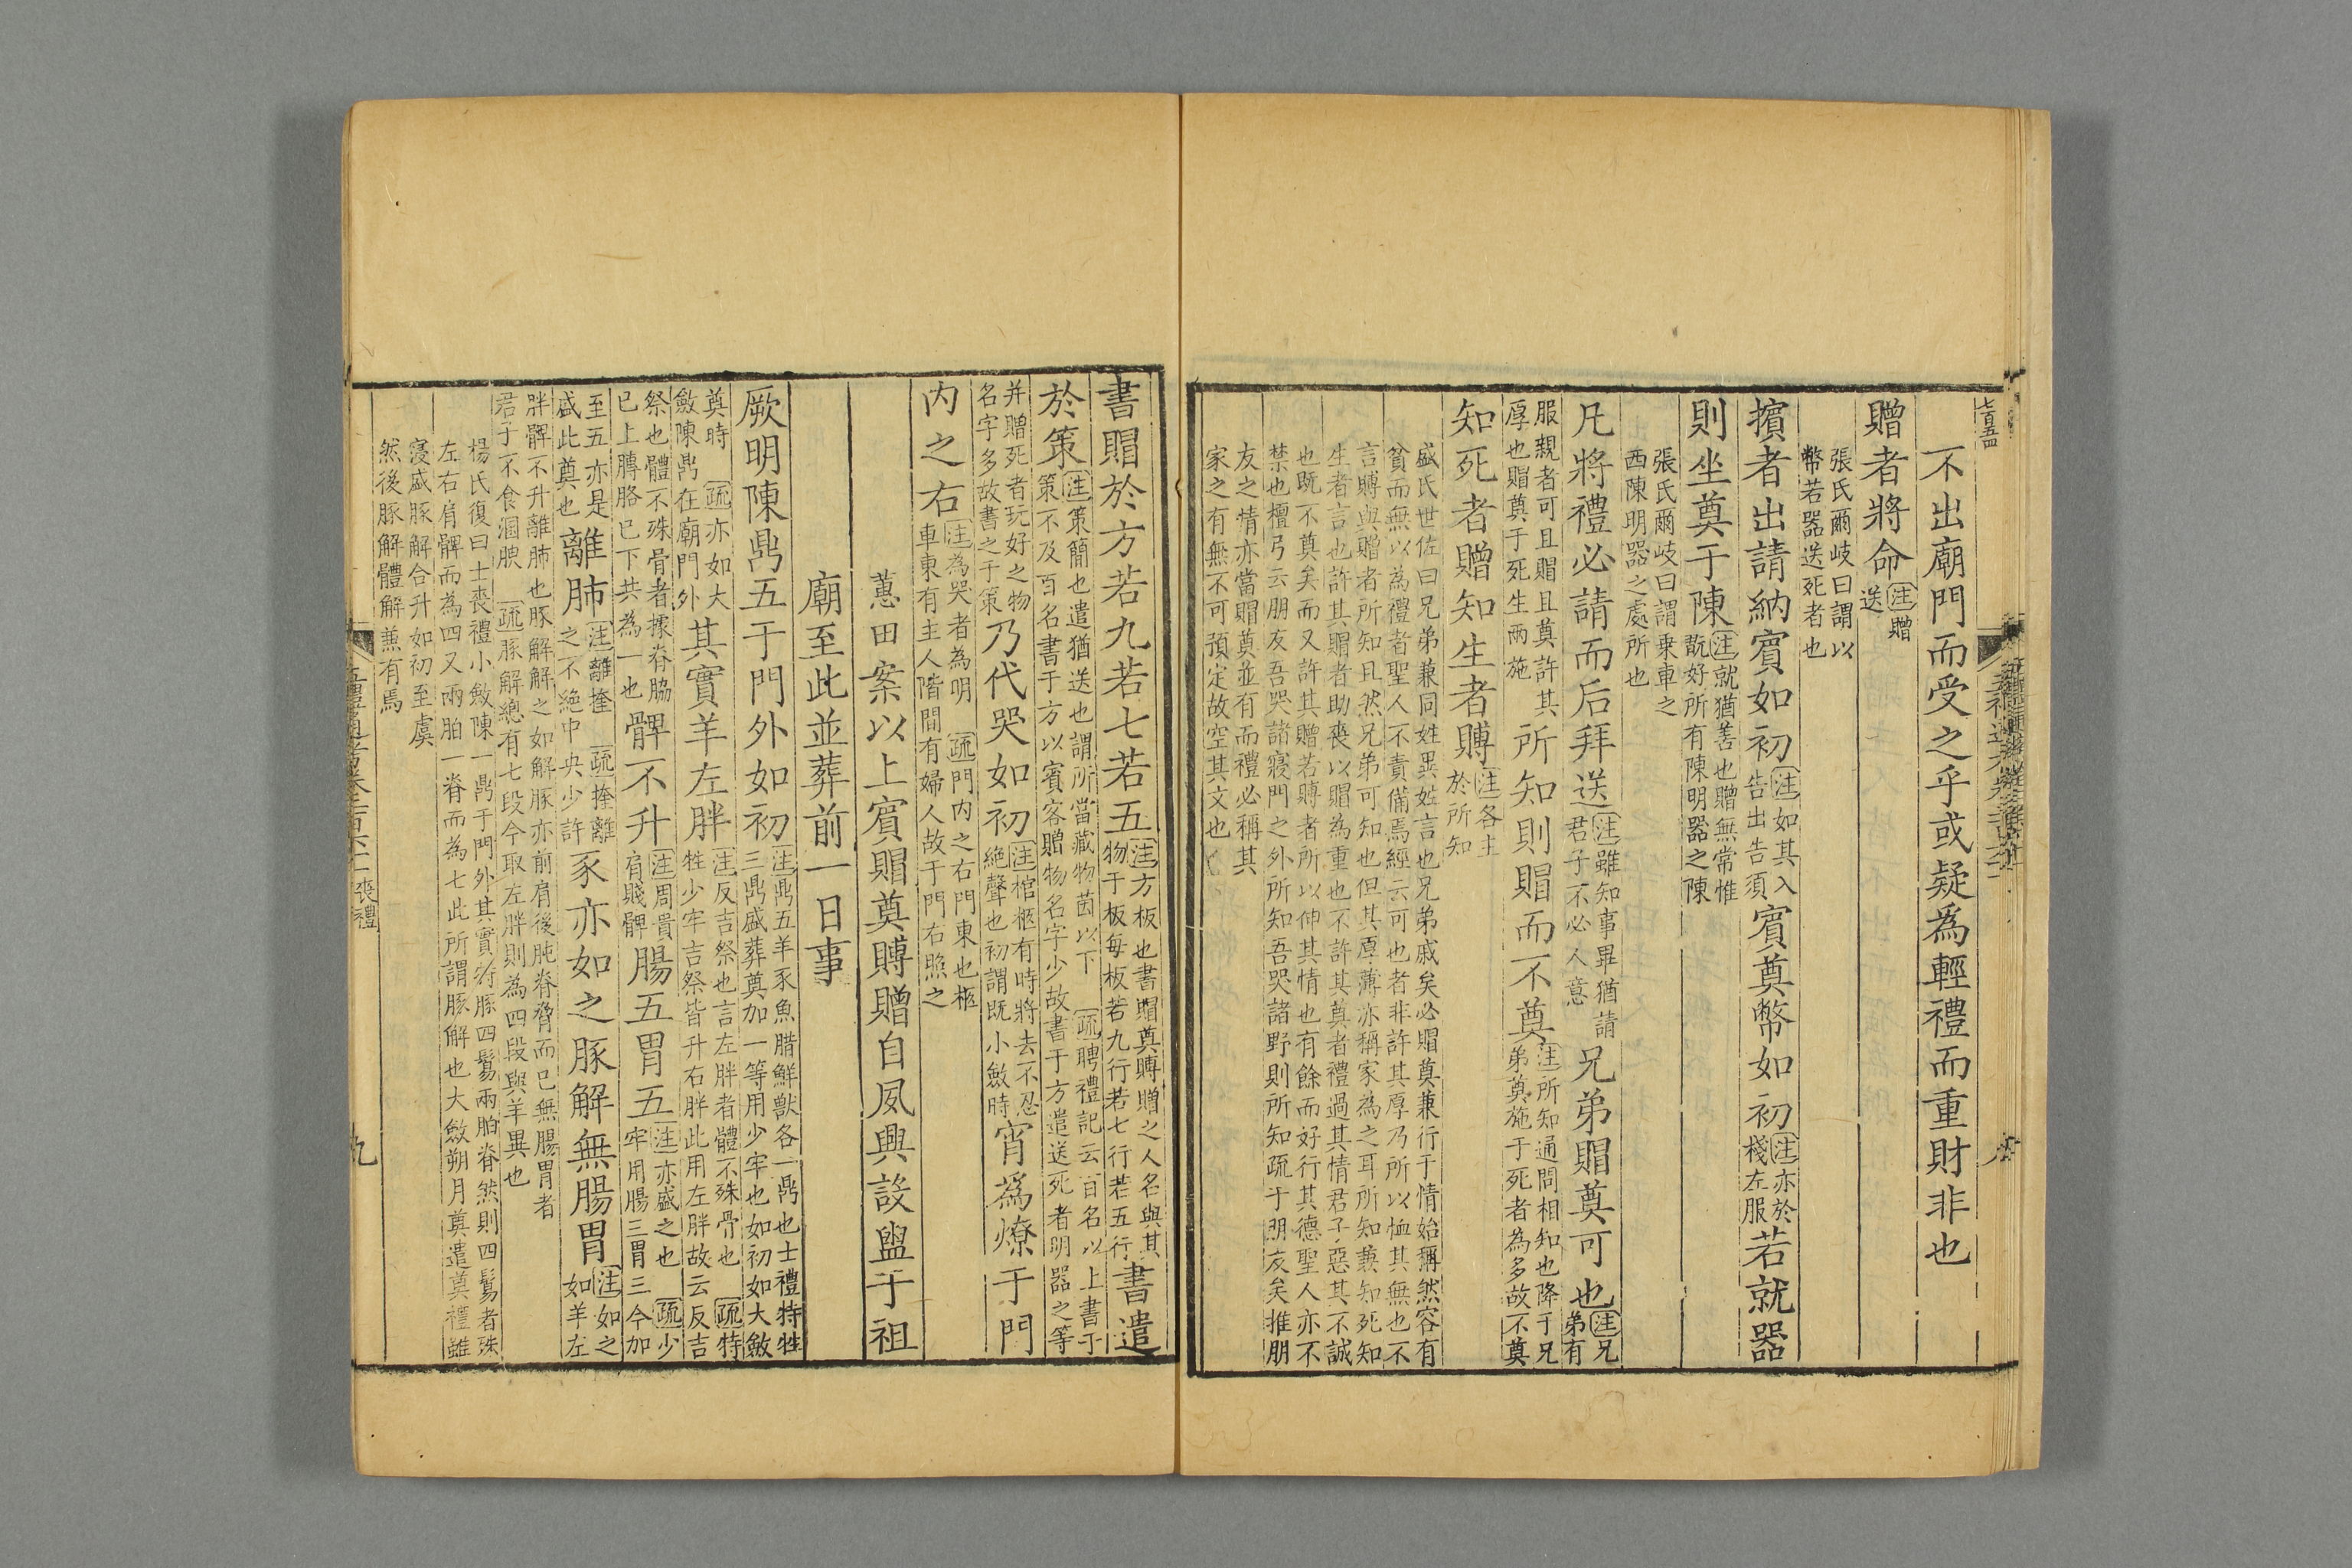 七百五四
不出廟門而受之乎或疑爲輕禮而重財非也
贈者將命注贈送
張氏爾岐曰謂以
幣若器送死者也
擯者出請納賓如初注如其入告出告須賓奠幣如初注亦於棧左服若就器
則坐奠于陳注就猶善也贈無常惟翫好所有陳明器之陳
張氏爾岐曰謂乗車之
西陳明器之處所也
凡將禮必請而后拜送注雖知事畢猶請君子不必人意兄弟賵奠可也注兄弟有
服親者可且賵且奠許其厚也賵奠于死生兩施所知則賵而不奠注所知通問相知也降于兄弟奠施于死者為多故不奠
知死者贈知生者賻注各主於所知
盛氏世佐曰兄弟兼同姓異姓言也兄弟戚矣必賵奠兼行于情始稱然容有
貧而無以為禮者聖人不責備焉經云可也者非許其厚乃所以恤其無也不
言賻與贈者所知且然兄弟可知也但其厚薄亦稱家為之耳所知兼知死知
生者言也許其賵者助喪以賵為重也不許其奠者禮過其情君子惡其不誠
也既不奠矣而又許其贈若賻者所以伸其情也有餘而好行其德聖人亦不
禁也檀弓云朋友吾哭諸寢門之外所知吾哭諸野則所知疏于朋友矣推朋
友之情亦當賵奠並有而禮必稱其
家之有無不可預定故空其文也
書賵於方若九若七若五注方板也書賵奠賻贈之人名與其物于板每板若九行若七行若五行書遣
於策注策簡也遣猶送也謂所當藏物茵以下疏聘禮記云百名以上書于策不及百名書于方以賓客贈物名字少故書于方遣送死者明器之等
并贈死者玩好之物名字多故書之于策乃代哭如初注棺柩有時將去不忍絶聲也初謂既小斂時宵爲燎于門
内之右注為哭者為明疏門内之右門東也柩車東有主人階間有婦人故于門右照之
蕙田案以上賓賵奠賻贈自夙興設盥于祖
廟至此並葬前一日事
厥明陳鼎五于門外如初注鼎五羊豕魚腊鮮獸各一鼎也士禮特牲三鼎盛葬奠加一等用少牢也如初如大斂
奠時疏亦如大斂陳鼎在廟門外其實羊左胖注反吉祭也言左胖者體不殊骨也疏特牲少牢吉祭皆升右胖此用左胖故云反吉
祭也體不殊骨者據脊脇已上膊胳已下共為一也髀不升注周貴肩賤髀腸五胃五注亦盛之也疏少牢用腸三胃三今加
至五亦是盛此奠也離肺注離㧶疏㧶離之不絶中央少許豕亦如之豚解無腸胃注如之如羊左
胖髀不升離肺也豚解解之如解豚亦前肩後肫脊脅而已無腸胃者
君子不食溷腴疏豚解總有七段今取左胖則為四段與羊異也
楊氏復曰士喪禮小斂陳一鼎于門外其實特豚四鬄兩胉脊然則四鬄者殊
左右肩髀而為四又兩胉一脊而為七此所謂豚解也大斂朔月奠遣奠禮雖
寖盛豚解合升如初至虞
然後豚解體解兼有焉
喪禮
九